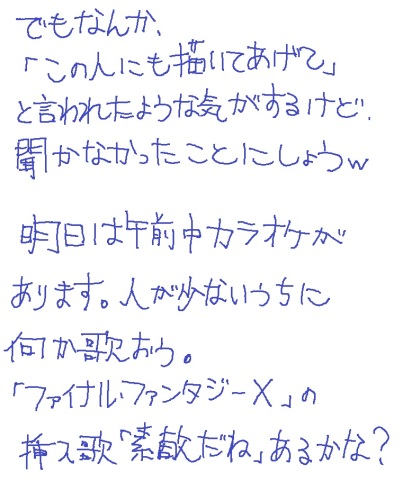 でもなんか、
「この人にも描いてあげて」
と言われたような気がするけど、
聞かなかったことにしようw
明日は午前中カラオケが
あります。人が少ないうちに
何か歌おう。
「ファイナルファンタジーX」の
挿入歌「素敵だね」あるかな?